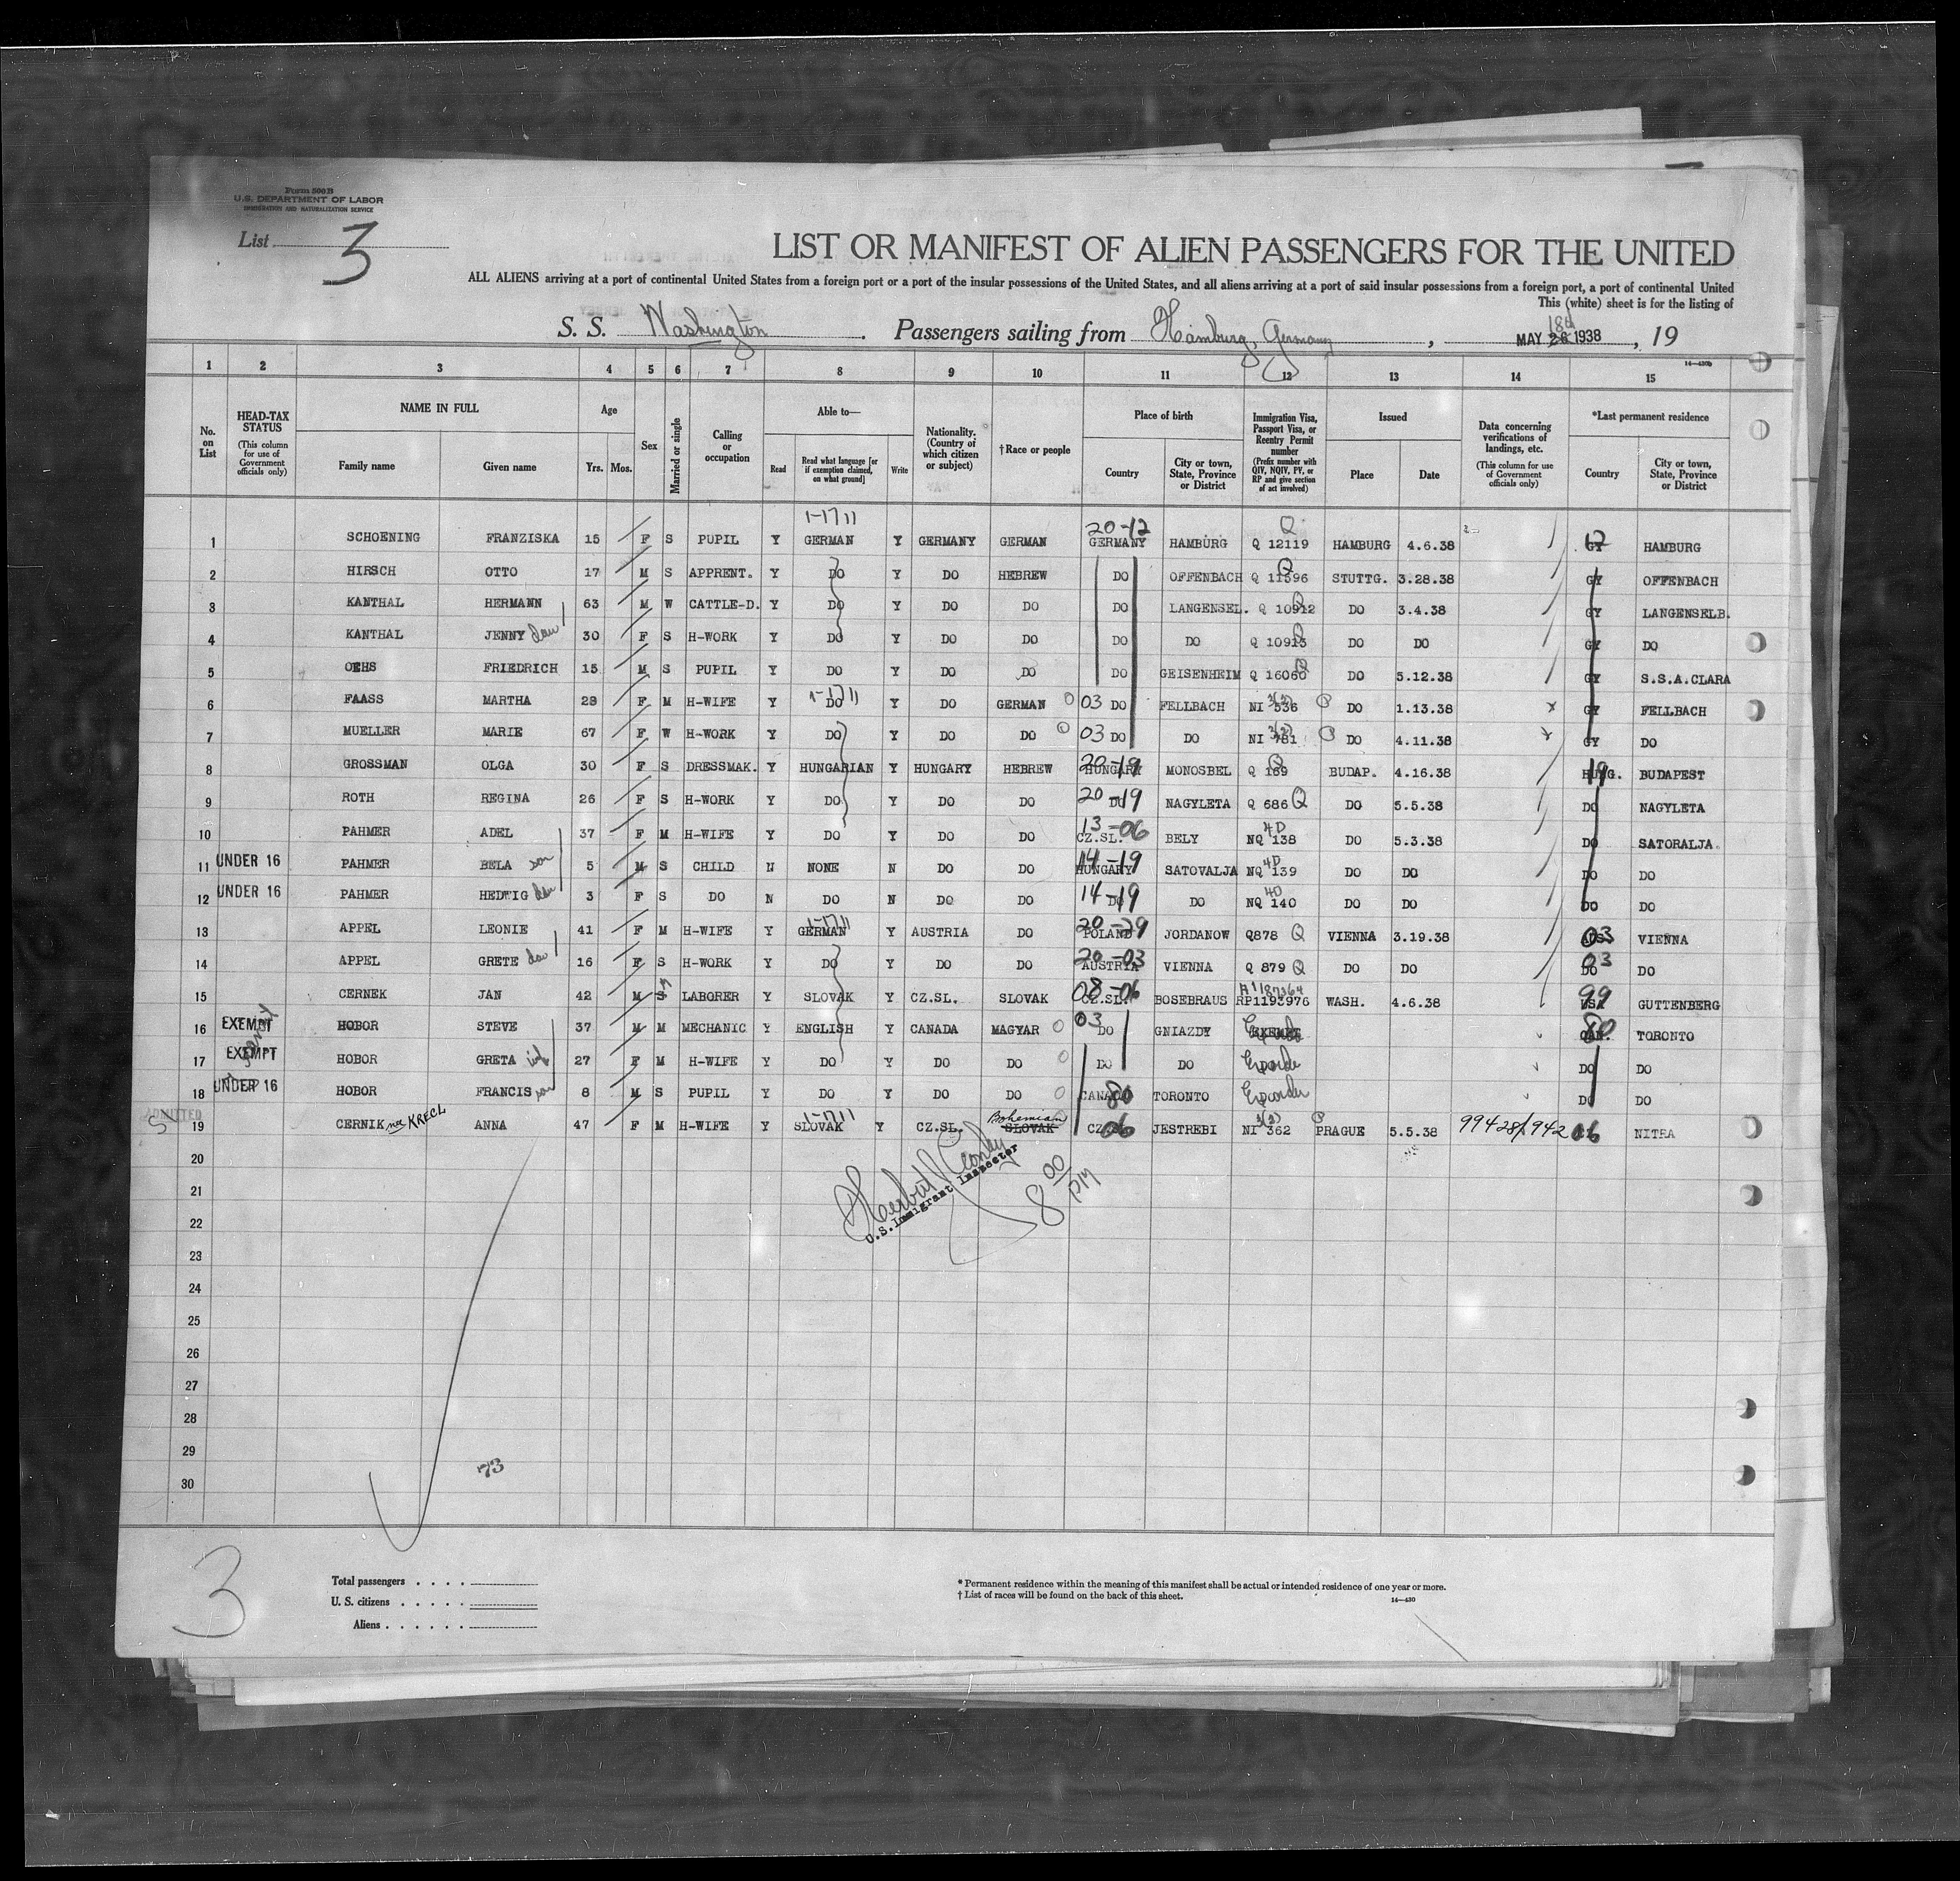 Form 500 B
U.S. DEPARTMENT OF LABOR
IMMIGRATION AND NATURALIZATION SERVICE
List 3
LIST OR MANIFEST OF ALIEN PASSENGERS FOR THE UNITED
ALL ALIENS arriving at a port of continental United States from a foreign port or a port of the insular possessions of the United States, and all aliens arriving at a port of said insular possessions from a foreign port, a port of continental United
This (white) sheet is for the listing of
S. S. Washington . Passengers sailing from Hamburg, Germany , MAY 26 1938 , 19
18th
14—430b
1 2 3 4 5 6 7 8 9 10 11 12 13 14 15
No. on List
HEAD-TAX STATUS (This column for use of Government officials only)
NAME IN FULL Family name Given name
Age Yrs. Mos.
Sex
Married or single
Calling or occupation
Able to— Read Read what language [or if exemption claimed, on what ground] Write
Nationality. (Country of which citizen or subject)
†Race or people
Place of birth Country City or town, State, Province or District
Immigration Visa, Passport Visa, or Reentry Permit number (Prefix number with QIV, NQIV, PV, or RP and give section of act involved)
Issued Place Date
Data concerning verifications of landings, etc. (This column for use of Government officials only)
*Last permanent residence Country City or town, State, Province or District
1-1711 20-12 Q
1 SCHOENING FRANZISKA 15 F S PUPIL Y GERMAN Y GERMANY GERMAN GERMANY HAMBURG Q 12119 HAMBURG 4.6.38 GY HAMBURG
2 HIRSCH OTTO 17 M S APPRENT. Y DO Y DO HEBREW DO OFFENBACH Q 11596 STUTTG. 3.28.38 GY OFFENBACH
3 KANTHAL HERMANN 63 M W CATTLE-D. Y DO Y DO DO DO LANGENSEL. Q 10912 DO 3.4.38 GY LANGENSELB.
4 KANTHAL JENNY dau 30 F S H-WORK Y DO Y DO DO DO DO Q 10913 DO DO GY DO
5 OEHS FRIEDRICH 15 M S PUPIL Y DO Y DO DO DO GEISENHEIM Q 16060 DO 5.12.38 GY S.S.A.CLARA
6 FAASS MARTHA 28 F M H-WIFE Y DO 1-1711 Y DO GERMAN 03 DO FELLBACH NI 536 DO 1.13.38 GY FELLBACH
7 MUELLER MARIE 67 F W H-WORK Y DO Y DO DO 03 DO DO NI 781 DO 4.11.38 GY DO
8 GROSSMAN OLGA 30 F S DRESSMAK. Y HUNGARIAN Y HUNGARY HEBREW HUNGARY 20-19 MONOSBEL Q 169 BUDAP. 4.16.38 HUNG. 19 BUDAPEST
9 ROTH REGINA 26 F S H-WORK Y DO Y DO DO DO 20-19 NAGYLETA Q 686 Q DO 5.5.38 DO NAGYLETA
10 PAHMER ADEL 37 F M H-WIFE Y DO Y DO DO CZ.SL. 13-06 BELY NQ 138 4D DO 5.3.38 DO SATORALJA.
11 UNDER 16 PAHMER BELA son 5 M S CHILD N NONE N DO DO HUNGARY 14-19 SATOVALJA NQ 139 4D DO DO DO DO
12 UNDER 16 PAHMER HEDWIG dau 3 F S DO N DO N DO DO DO 14-19 DO NQ 140 4D DO DO DO DO
13 APPEL LEONIE 41 F M H-WIFE Y GERMAN 1-1711 Y AUSTRIA DO POLAND 20-29 JORDANOW Q878 Q VIENNA 3.19.38 03 VIENNA
14 APPEL GRETE dau 16 F S H-WORK Y DO Y DO DO AUSTRIA 20-03 VIENNA Q 879 Q DO DO DO 03 DO
15 CERNEK JAN 42 M S LABORER Y SLOVAK Y CZ.SL. SLOVAK CZ.SL. 08-06 BOSEBRAUS RP1193976 WASH. 4.6.38 USA 99 GUTTENBERG
16 EXEMPT HOBOR STEVE 37 M M MECHANIC Y ENGLISH Y CANADA MAGYAR 03 DO GNIAZDY EXEMPT CAN. 80 TORONTO
17 EXEMPT HOBOR GRETA wife 27 F M H-WIFE Y DO Y DO DO DO DO DO DO
18 UNDER 16 HOBOR FRANCIS son 8 M S PUPIL Y DO Y DO DO CANADA 80 TORONTO DO DO
ADMITTED
19 CERNIK nee KRECL ANNA 47 F M H-WIFE Y SLOVAK 1-1711 Y CZ.SL. SLOVAK Bohemian CZ.SL. 06 JESTREBI NI 362 PRAGUE 5.5.38 06 NITRA
20
21
22
23
24
25
26
27
28
29
30
U.S. Immigrant Inspector
8 00 PM
73
3
Total passengers
U. S. citizens
Aliens
* Permanent residence within the meaning of this manifest shall be actual or intended residence of one year or more.
† List of races will be found on the back of this sheet.
14—430